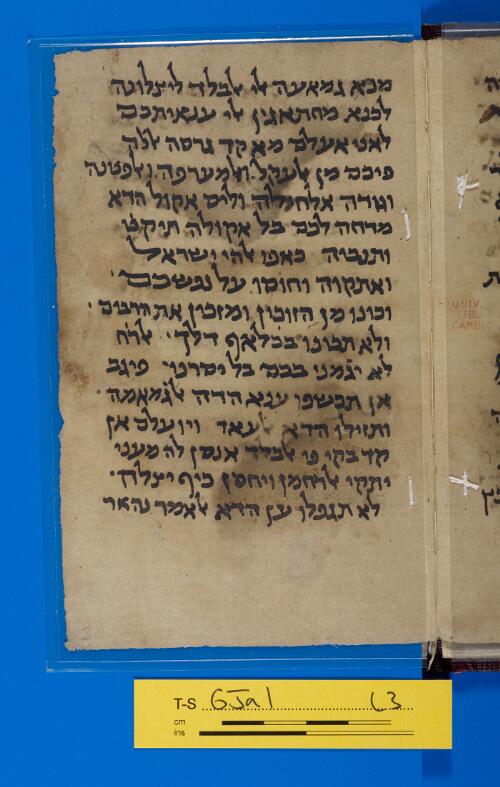 מנא גמאעה לי אלבלד ליצלונה
לכנא מחתאגין לי ענאיתכם
לאני אעלם מא קד גרסה אללה
פיכם מן אלעקל ואלמערפה ואלפטנה
וגודה אלחילה וליס אקול הדא
מדחה לכם בל אקולה תיקט
ותנביה כאפו אלהי ישראל
ואתקוה וחוסו על נפשכם
וכונו מן הזוכין ומזכין את הרבים
ולא תכונו בכלאף דלך אלרח
לא יגמני בכם בל יסרני פיגב
אן תכשפו ענא הדה אלגמאמה
ותזילו הדא אלעאר ויועלם אן
קד בקי פי אלבלד אנסן לה מעני
יתקי אלרחמן ויחסן כיף יצלח
לא תגפלו ען הדא אלאמר נהאר
UNIV.
LIB.
CAMB.
T-S GJa1 L3
cm
ins